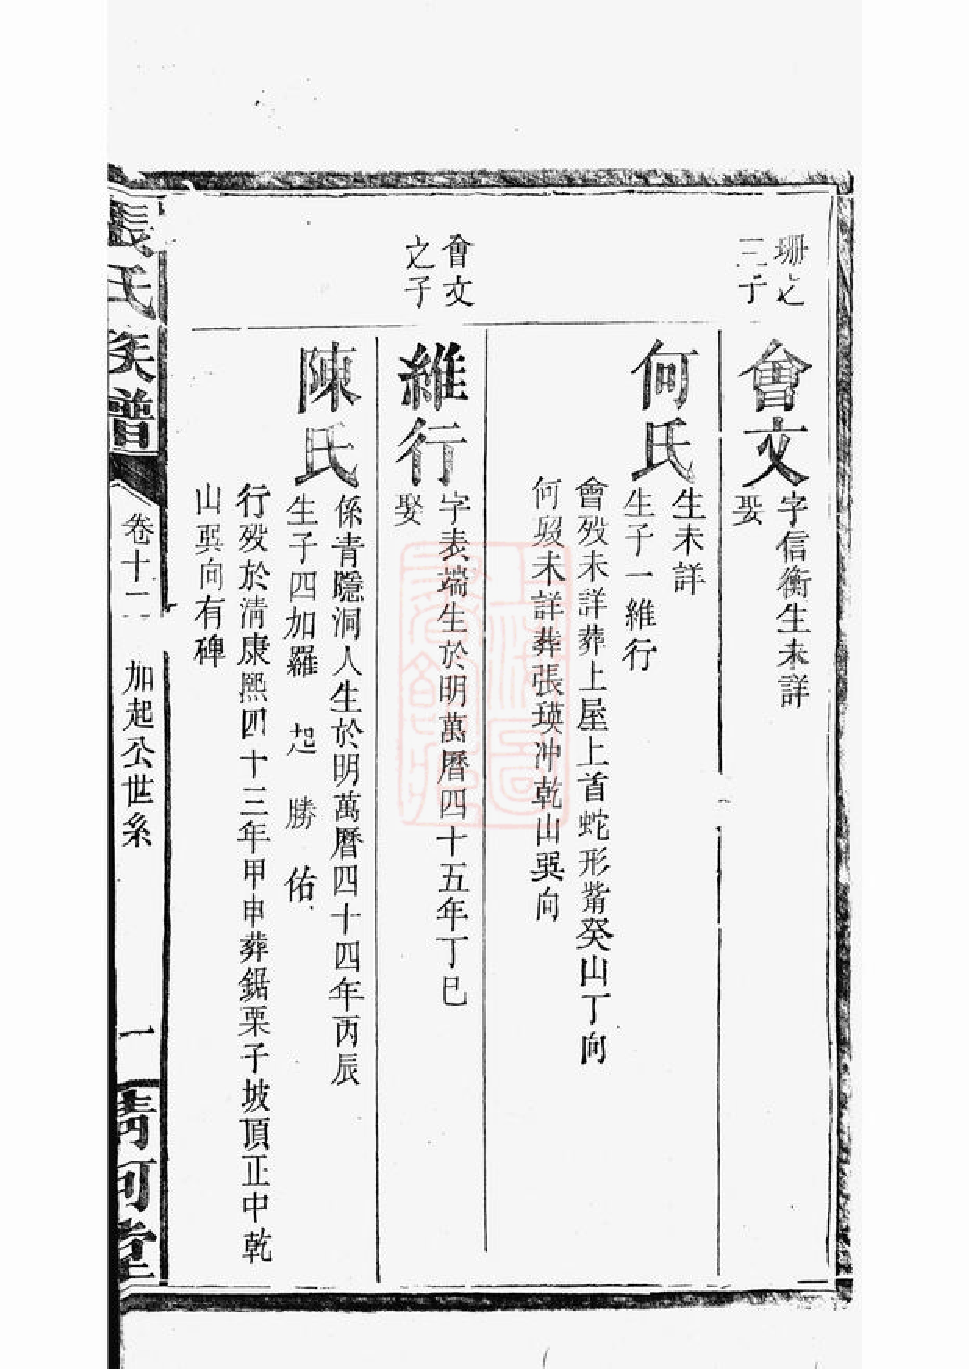 珊之
三子
會文
字信衡生未詳
娶
何氏
生未詳
生子一維行
會歿未詳葬上屋上首蛇形觜癸山丁向
何歿未詳葬張瑛冲乾山巽向
會文
之子
維行
字表端生於明萬曆四十五年丁巳
娶
陳氏
係青隱洞人生於明萬曆四十四年丙辰
生子四加羅 起 勝 佑
行歿於清康熙四十三年甲申葬鋸栗子坡頂正中乾
山巽向有碑
張氏族譜
卷十二
加起公世系
一
清河堂